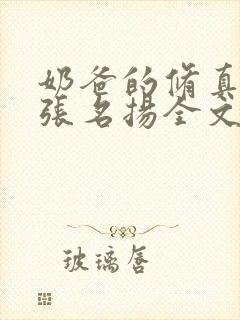 奶爸的脩真
張名揚全文
玻璃唇